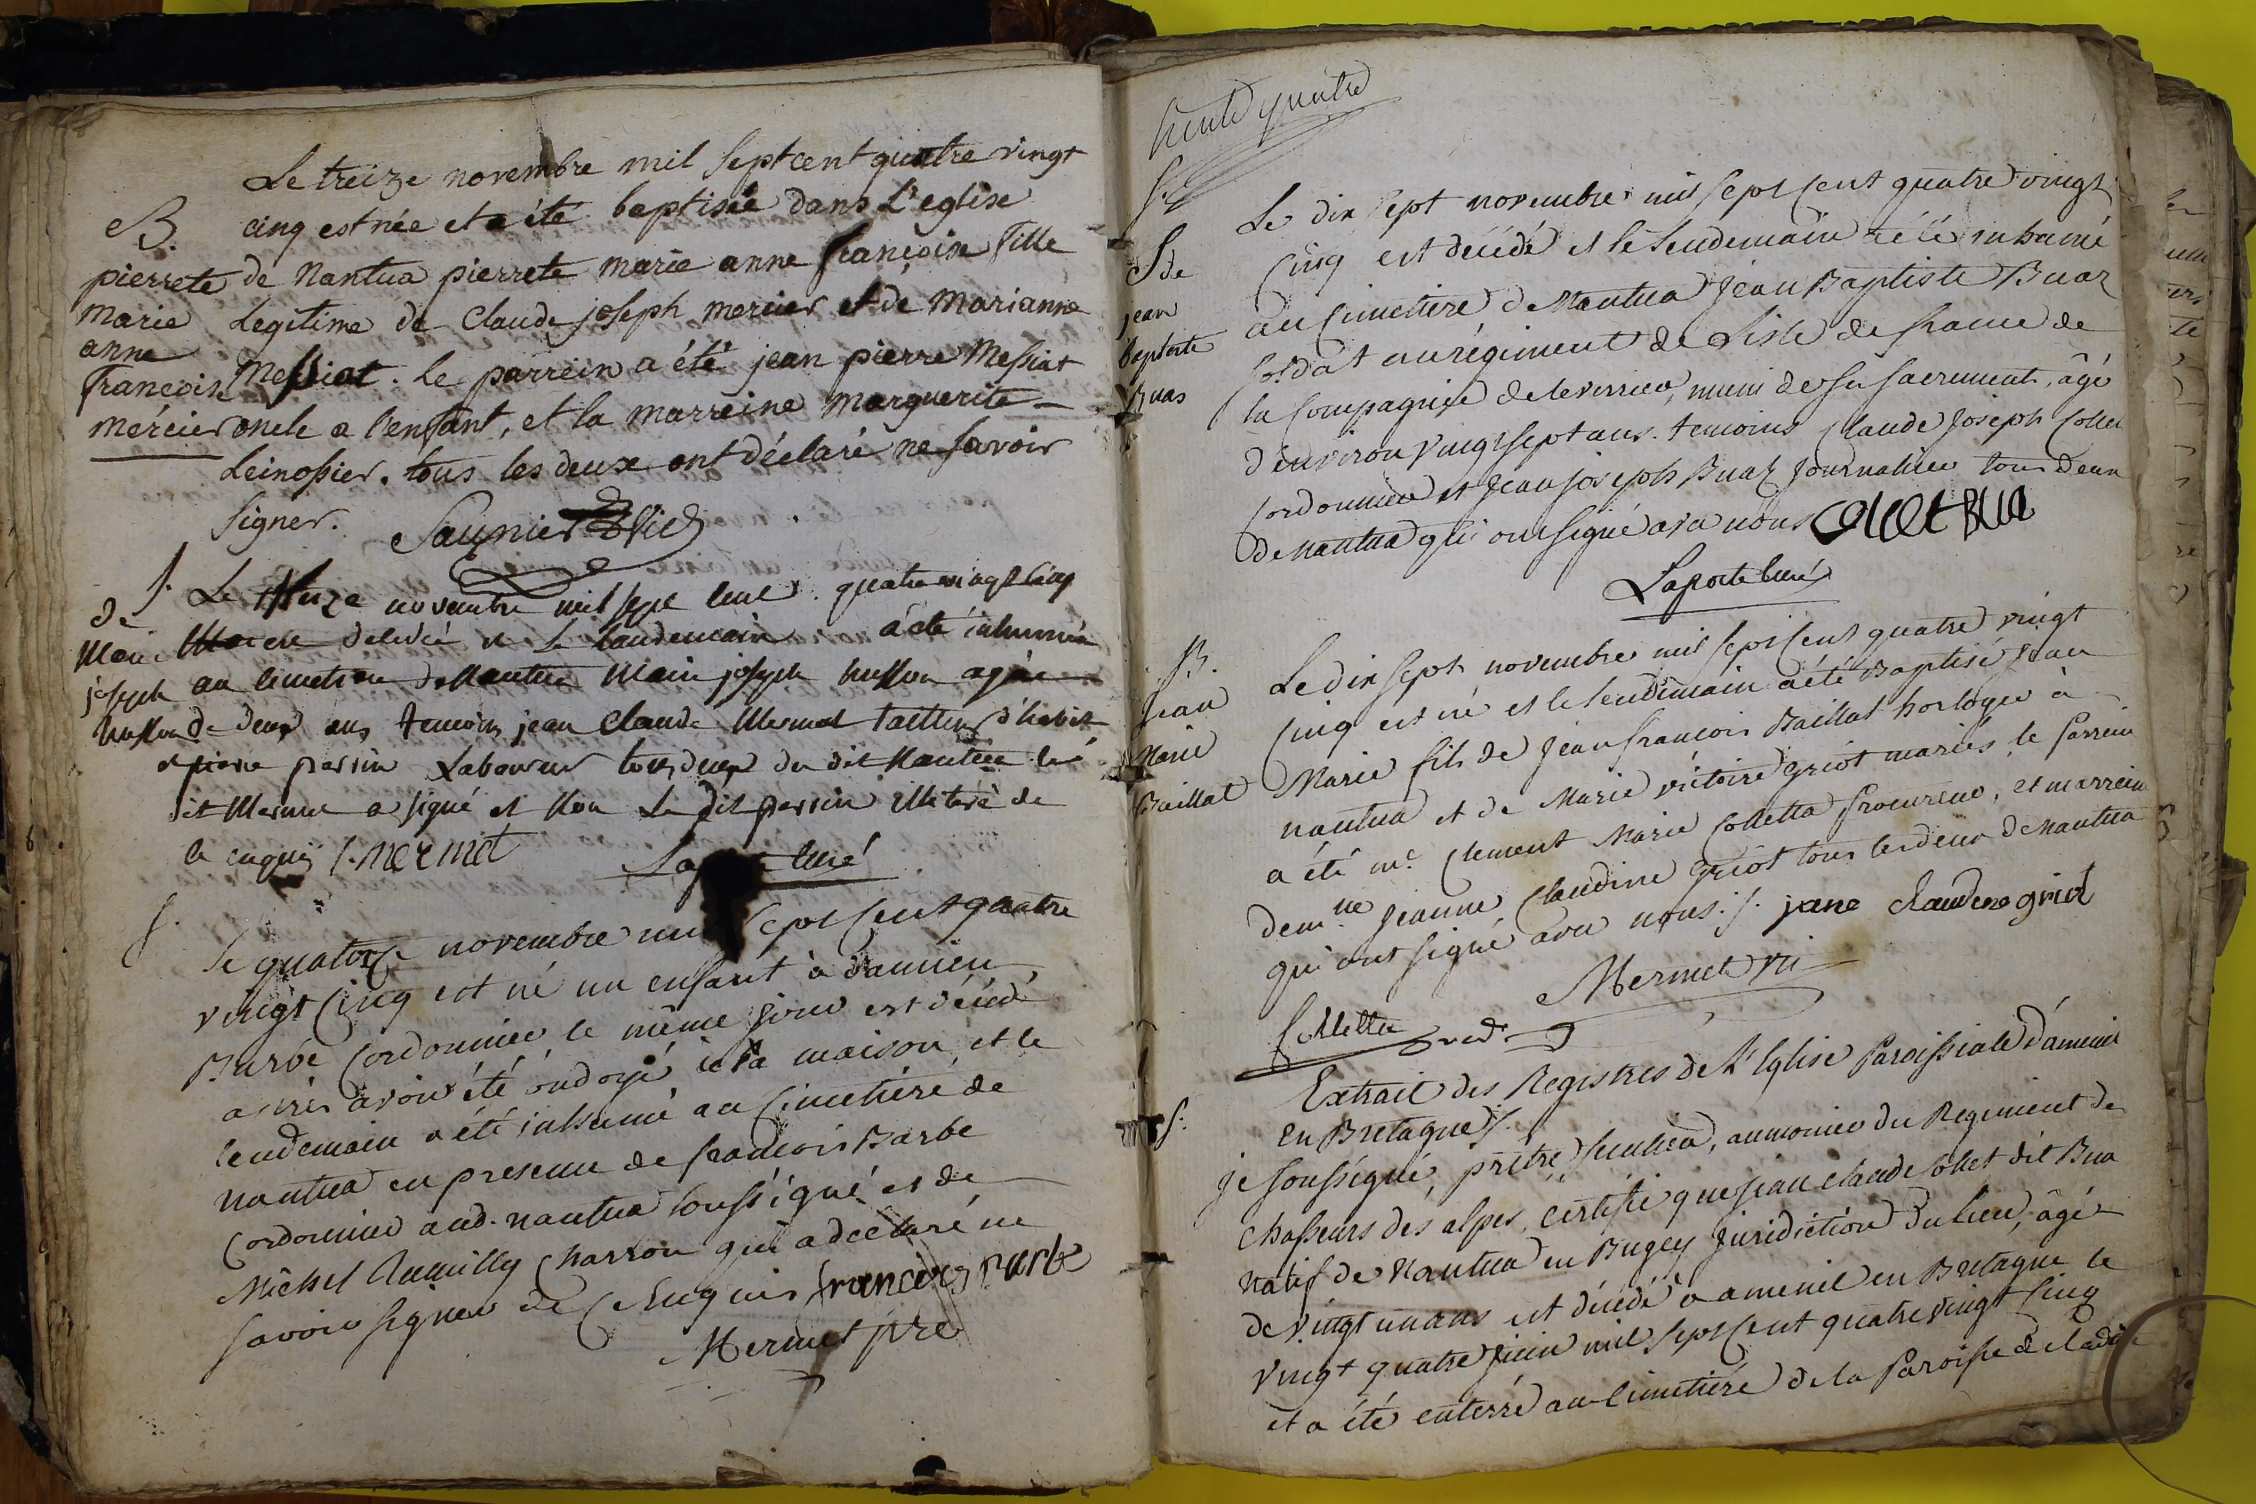 Le treize novembre mil sept cent quatre vingt
B. cinq est née et a été baptisée dans L'eglise
pierrete de Nantua pierrete marie anne françoise fille
marie Legitime de Claude joseph mercier et de marianne
anne
françoise Messiat. le parrein a été jean pierre Messiat
mércier oncle a l'enfant, et la marreine marguerite
Leinossier. tous les deux ont déclaré ne savoir
signer. Saunier Vic
S. Le novembre mil sept cent quatre vingt cinq
de
Marie decedé et le landemain a été inhumée
joseph au cimetiere de Nantua Marie joseph husson agée
husson de deux ans temoins jean claude Mermet tailleur d'habit
et pierre perrin Laboureur tous deux du dit Nantua le
dit Mermet a signé et non Le dit perrin illiteré de
ce enquis j. Mermet La curé
S. Le quatorze novembre mil sept cent quatre
vingt cinq est né un enfant à damien
Barbe Cordonnier le même jour est décédé
après avoir été ondoyé à la maison, et le
lendemain a été inhumé au Cimetiére de
nantua en presence de francois Barbe
Cordonnier aud. nantua soussigné et de
Michel Rumilly Charron qui a declaré ne
savoir signer de Ce Enquis francois barbe
Mermet ptre
trente quatre
Le dix sept novembre mil sept cent quatre vingt
S de Cinq est décédé et le lendemain a été inhumé
jean au Cimetiere de Nantua Jean Baptiste Buaz
baptiste soldat au régiment de Lisle de france de
Buas la Compagnie de leverrier, muni de ses sacrements, âgé
d'environ vingt sept ans. temoins Claude Joseph Collet
Cordonnier et Jean joseph Buaz Journalier tous deux
de nantua qui ont signé avec nous Collet BUA
Laporte curé
B. Le dix sept novembre mil sept cent quatre vingt
Jean Cinq est né et le lendemain a été Baptisé Jean
Marie Marie fils de Jean francois Baillat horloger à
Baillat nantua et de Marie victoire griot mariés, le parrein
a été mr. Clement Marie Colletta procureur, et marreine
demlle Jeanne Claudine griot tous les deux de nantua
qui ont signé avec nous. jane claudine griot
Mermet vic
Colletta
Extrait des Registres de L'Eglise Paroissiale d'amenil
En Bretagne
S. je soussigné, prêtre séculier, aumonier du Regiment des
chasseurs des alpes, certifie que jean claude Collet dit Bua
natif de Nantua en Bugey juridiction du lieu, âgé
de vingt un ans est décédé à amenil en Bretagne le
vingt quatre juin mil sept cent quatre vingt cinq
et a été enterré au Cimetiére de la Paroisse de ladite